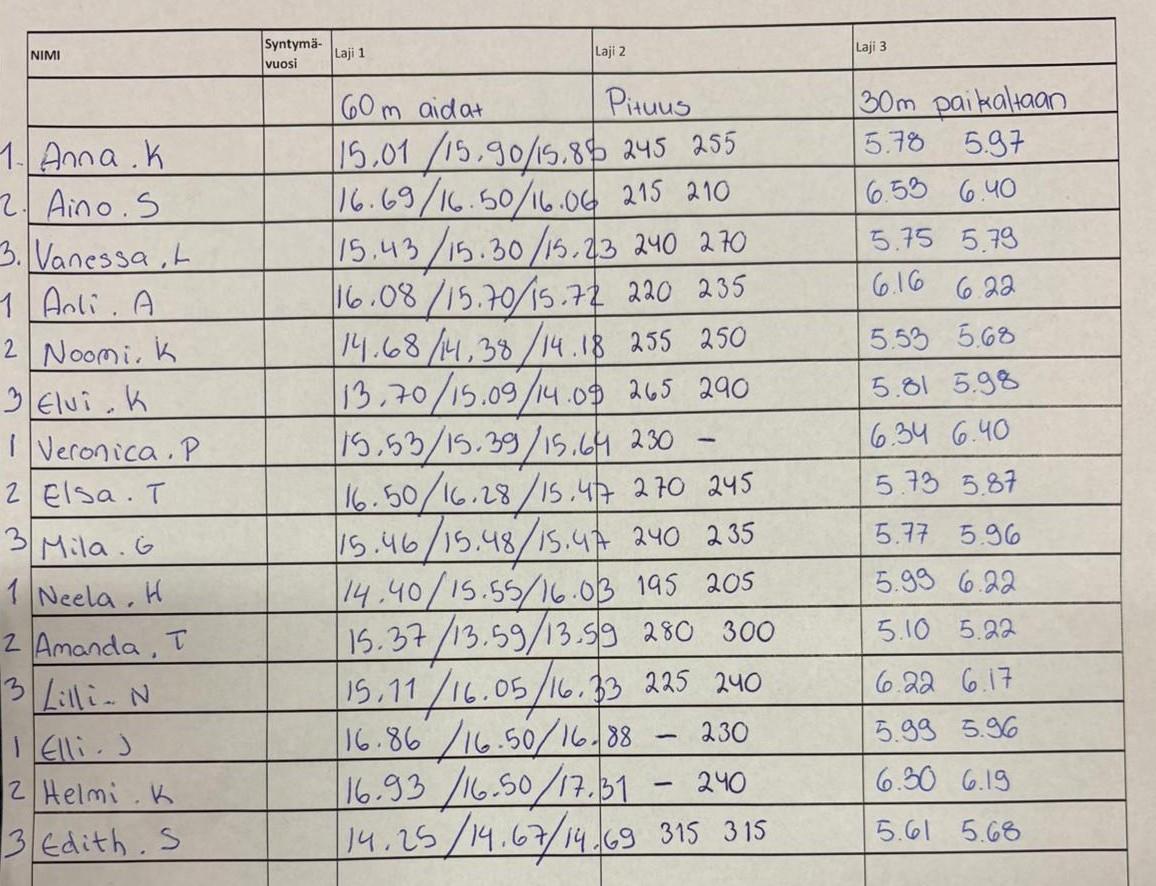 NIMI Syntymä-vuosi Laji 1 Laji 2 Laji 3
60m aidat Pituus 30m paikaltaan
1. Anna.K 15.01/15.90/15.85 245 255 5.78 5.97
2. Aino.S 16.69/16.50/16.06 215 210 6.53 6.40
3. Vanessa.L 15.43/15.30/15.23 240 270 5.75 5.79
1 Anli.A 16.08/15.70/15.72 220 235 6.16 6.22
2 Noomi.K 14.68/14.38/14.18 255 250 5.53 5.68
3 Elvi.K 13.70/15.09/14.09 265 290 5.81 5.98
1 Veronica.P 15.53/15.39/15.64 230 – 6.34 6.40
2 Elsa.T 16.50/16.28/15.47 270 245 5.73 5.87
3 Mila.G 15.46/15.48/15.47 240 235 5.77 5.96
1 Neela.H 14.40/15.55/16.03 195 205 5.99 6.22
2 Amanda.T 15.37/13.59/13.59 280 300 5.10 5.22
3 Lilli.N 15.11/16.05/16.33 225 240 6.22 6.17
1 Elli.J 16.86/16.50/16.88 – 230 5.99 5.96
2 Helmi.K 16.93/16.50/17.31 – 240 6.30 6.19
3 Edith.S 14.25/14.67/14.69 315 315 5.61 5.68